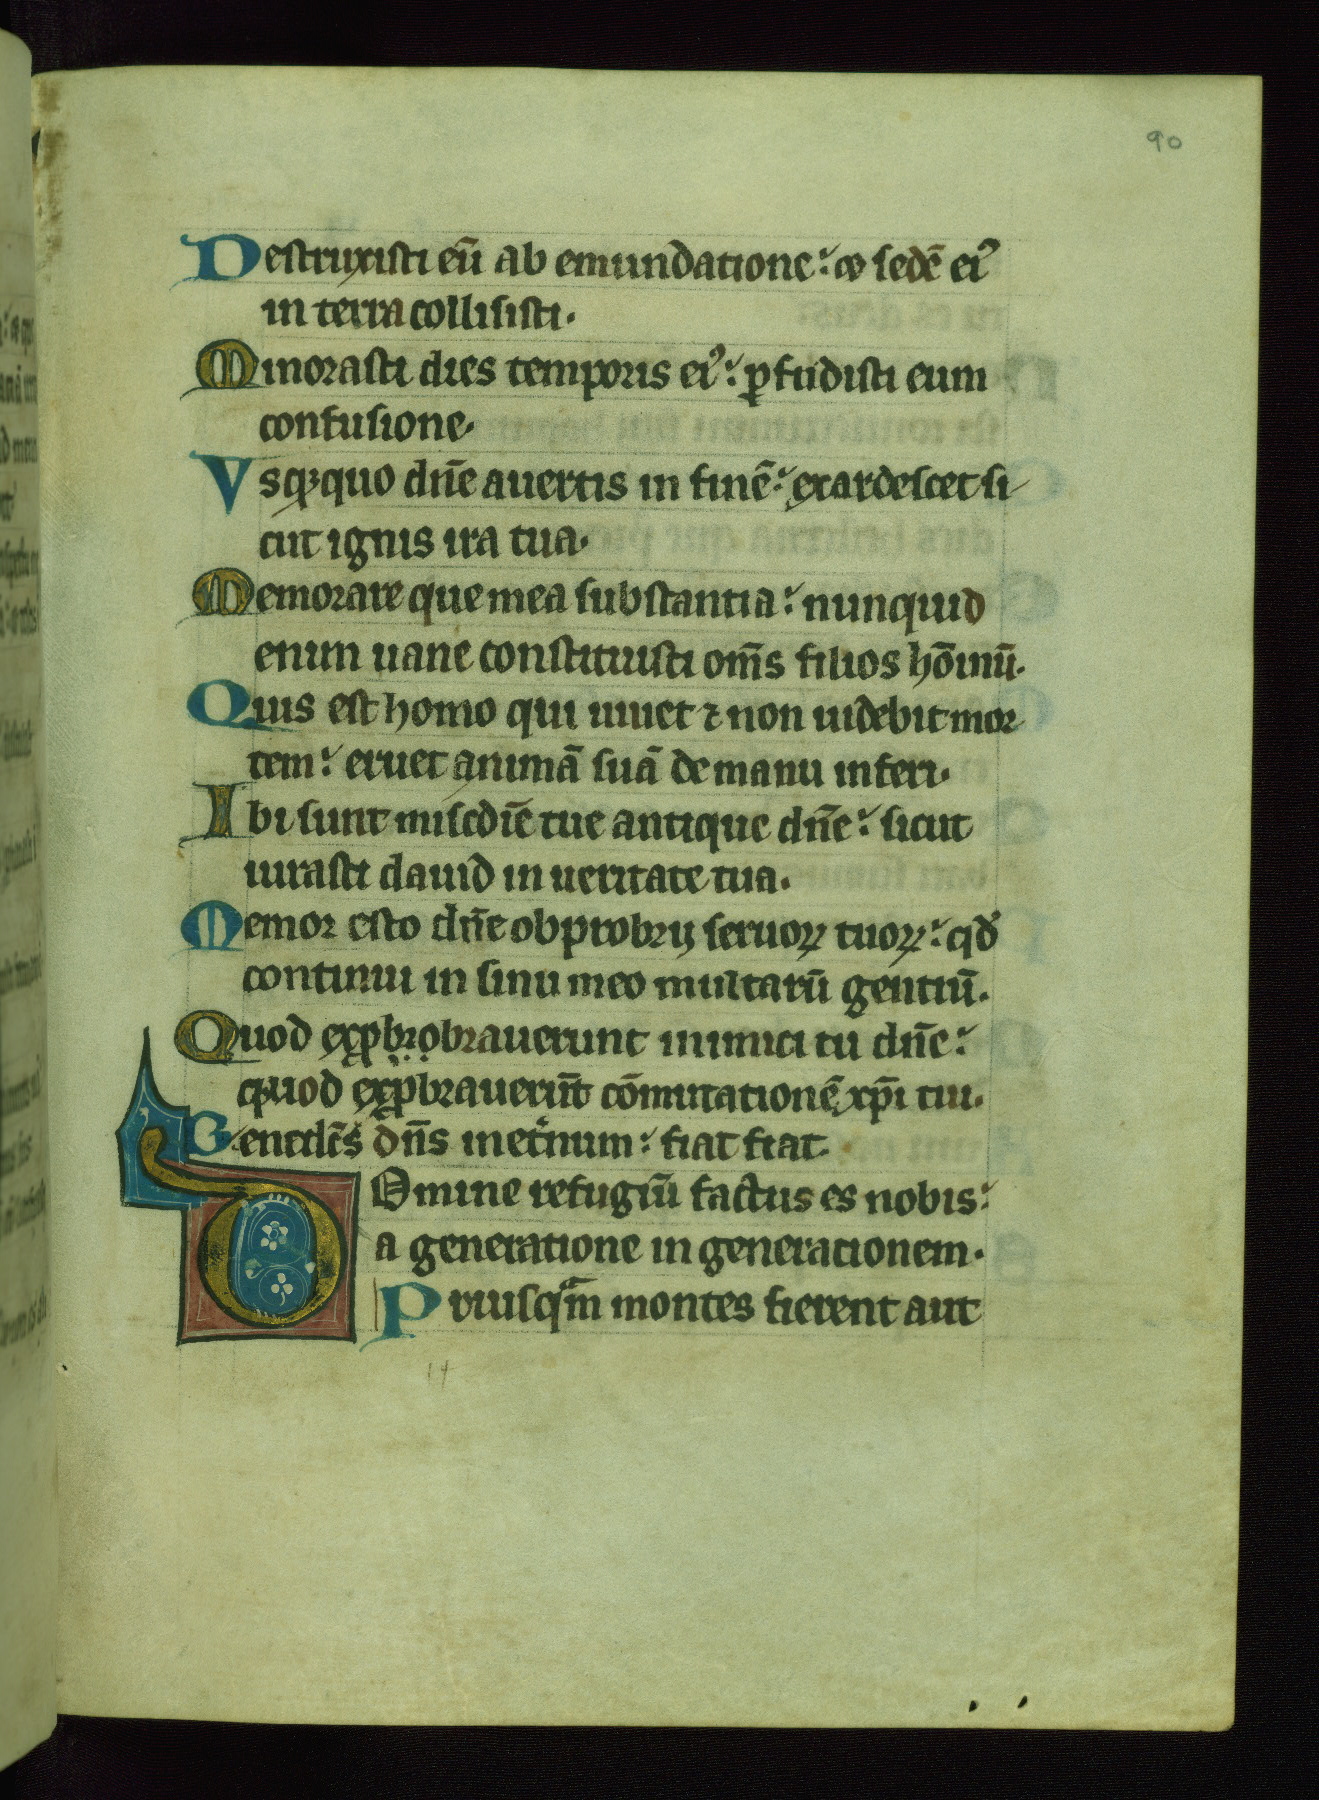 90
Destruxisti eū ab emundatione: ⁊ sedē ei⁹
in terra collisisti.
Minorasti dies temporis ei⁹: ꝑfudisti eum
confusione.
Vsqꝫquo dn̄e auertis in finē: exardescet si
cut ignis ira tua.
Memorare que mea substantia: nunquid
enim uane constituisti om̄s filios hōinū.
Quis est homo qui uiuet ⁊ non uidebit mor
tem: eruet animā suā de manu inferi.
Ibi sunt misc̄die tue antique dn̄e: sicut
iurasti dauid in ueritate tua.
Memor esto dn̄e obprobrij seruoꝝ tuoꝝ: qd̓
continui in sinu meo multarū gentiū.
Quod exprobrobrauerunt inimici tui dn̄e:
quod exꝓbrauerūt cōmutationē xp̄i tui.
Benedc̄s dn̄s in et̓num: fiat fiat.
Domine refugiū factus es nobis:
a generatione in generationem.
Priusqᵃm montes fierent aut
14